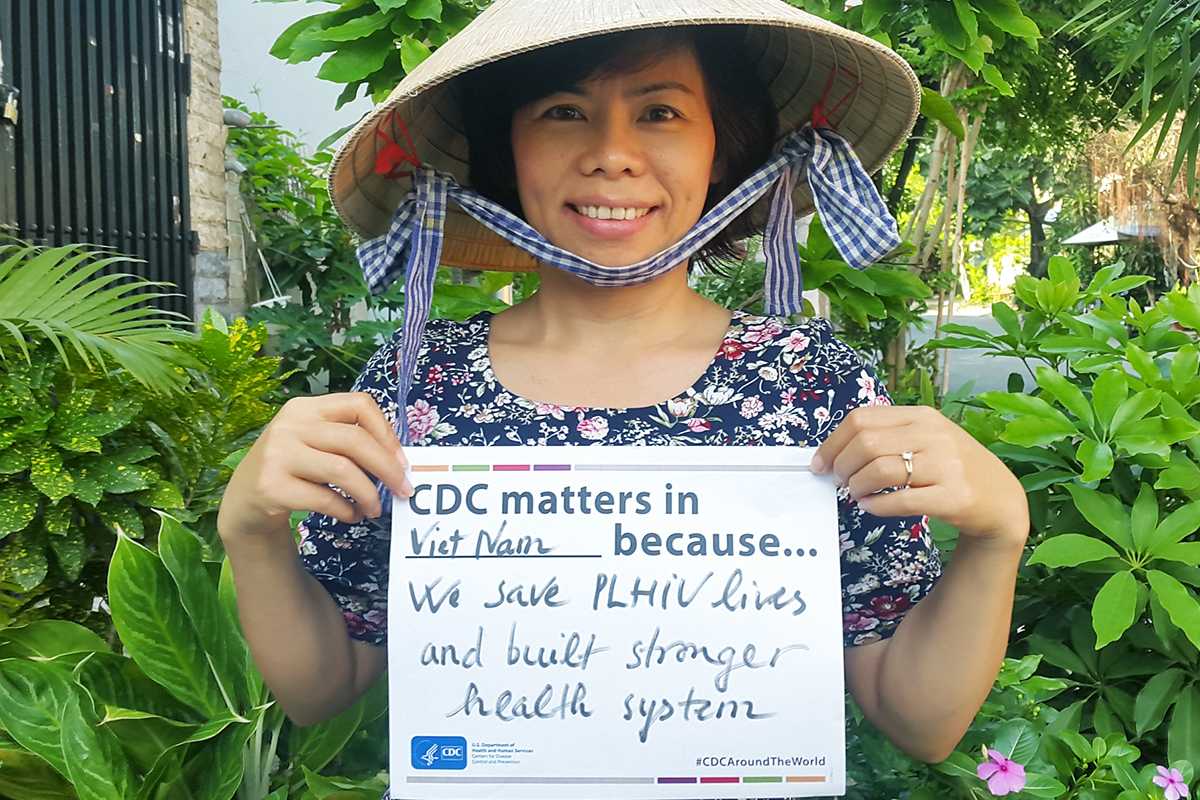 CDC matters in
Viet Nam because...
We save PLHIV lives
and built stronger
health system
CDC
U.S. Department of
Health and Human Services
Centers for Disease
Control and Prevention
#CDCAroundTheWorld